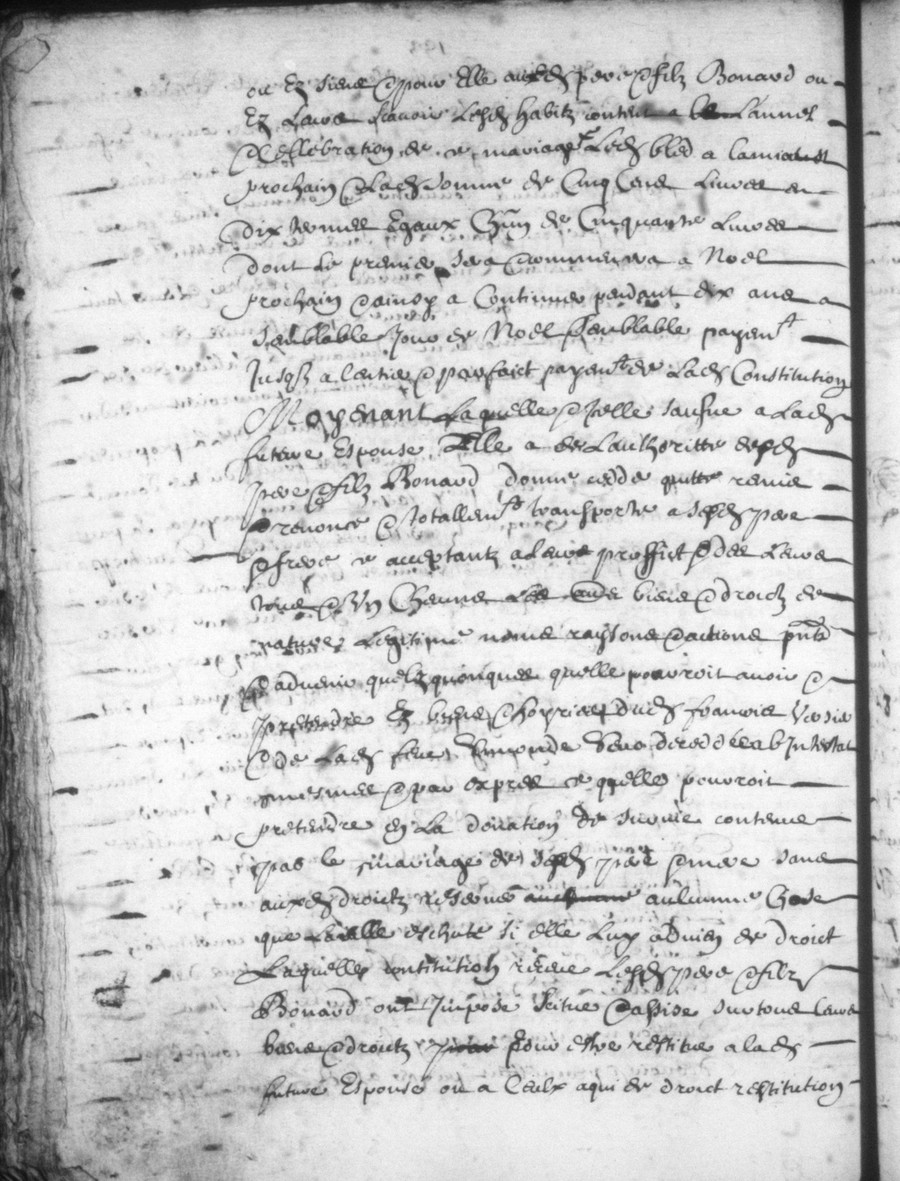 ou Ez siens & pour Elle ausd pere & filz Bonard ou
Ez Leurs scavoir Lesd habitz contenu a Lannel
& Cellebration de ce mariage Led bled a
prochain & Lad somme de Cinq Cens Livres en
dix termes Egaux Chun de Cinquante Livres
dont Le premier sera & commencera a Noel
prochain & ainsy a Continuer pendant dix ans a
semblable Jour de Noel semblable payent
Jusqz a lentier & parfaict payent de Lad Constitution
Moyenant Laquelle & Icelle saufve a Lad
future Espouse Elle a de Lauthoritte desd
pere & filz Bonard donne cedde quitte remis
renoncé & totallemt transporté a sesd pere
& frere acceptantz a Leur proffict & des Leurs
tous & Un biens & droictz de
nature Legitime noms raysons & actions pnts
& advenir quelzquonques quelle pourroit avoir &
pretendre Ez biens & hoyries dud francois
& de Lad feue ab Intestat
mesmes & par expres ce quelle pouvroit
pretendre En La donation de survie contenue
pas le mariage de sesd pere & mere sans
ausd droictz reserver aulcune Chose
que eschute si elle Luy advien de droict
Laquelle contitution Lesd pere & filz
Bonard ont Imposé scitué & assise sur tous Leurs
biens & droictz pour estre restitué a lad
future Espouse ou a Ceulx a qui de droict restitution